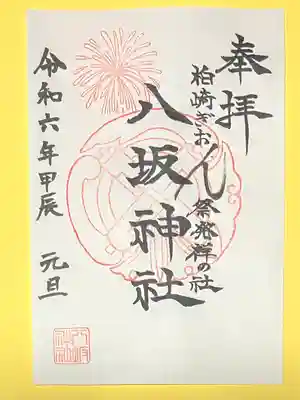 奉拝
柏崎ぎおん祭発祥の社
八坂神社
令和六年甲辰 元旦